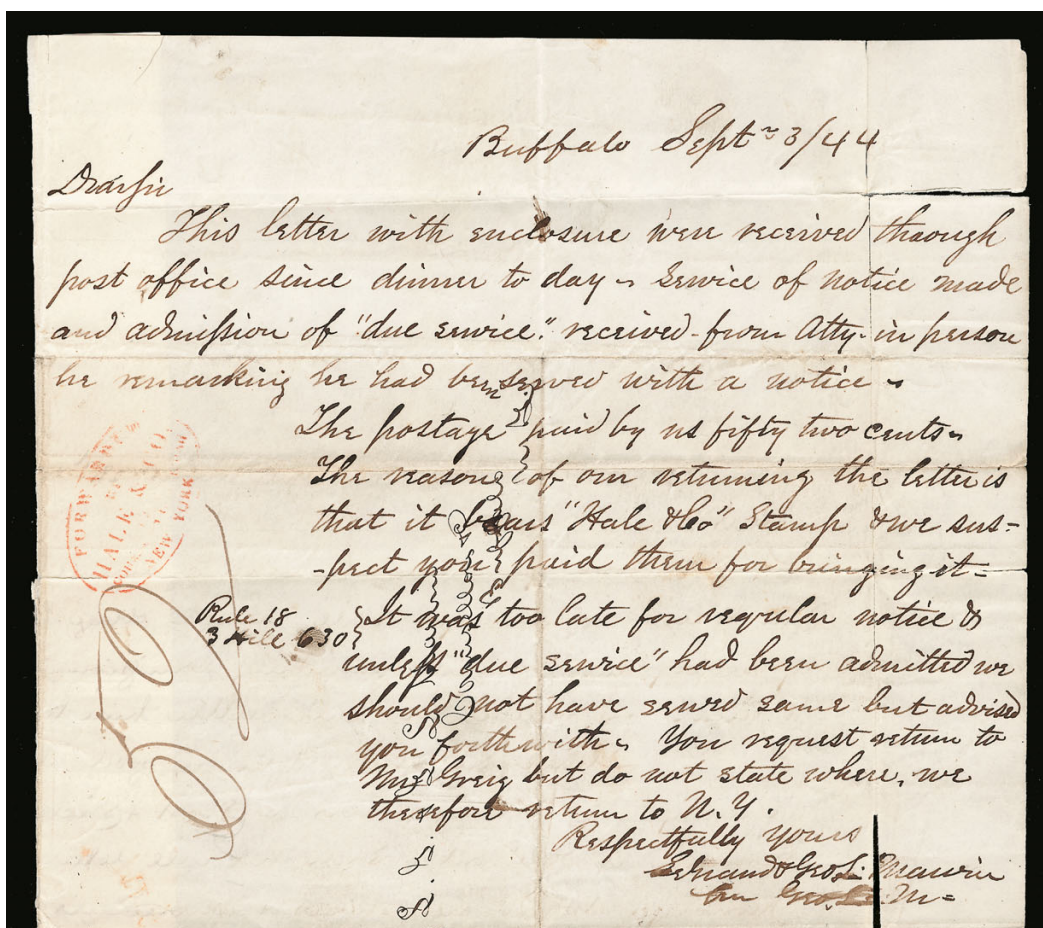 Buffalo Sept 3/44
Dear Sir
This letter with enclosure were received through
post office since dinner to day - Service of notice made
and admission of "due service" received from Atty. in person
he remarking he had been served with a notice -
The postage paid by us fifty two cents -
The reason of our returning the letter is
that it bears "Hale & Co" Stamp & we sus-
-pect you paid them for bringing it -
Rule 18
3 Hill 630
It was too late for regular notice &
unless "due service" had been admitted we
should not have served same but advised
you forthwith - You request return to
Mr Greig but do not state where, we
therefore return to N.Y.
Respectfully yours
& Geo L. Marvin
Geo. L. M-
FORWARDED
BY
HALE & CO.
NEW YORK